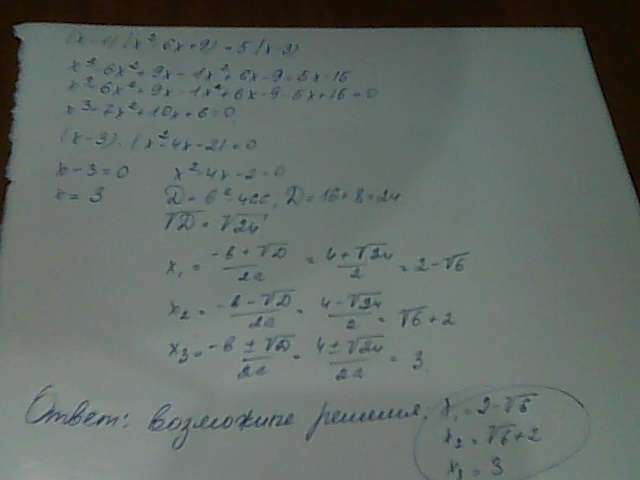 (x-1)(x²-6x+9)=5(x-3)
x³-6x²+9x-1x²+6x-9=5x-15
x³-6x²+9x-1x²+6x-9-5x+15=0
x³-7x²+10x+6=0
(x-3)·(x²-4x-2)=0
x-3=0 x²-4x-2=0
x=3 D=b²-4ac, D=16+8=24
√D=√24
x₁=(-b+√D)/2a=(4+√24)/2=2-√6
x₂=(-b-√D)/2a=(4-√24)/2=√6+2
x₃=(-b±√D)/2a=(4±√24)/2a=3
Ответ: возможные решения: x₁=2-√6
x₂=√6+2
x₃=3